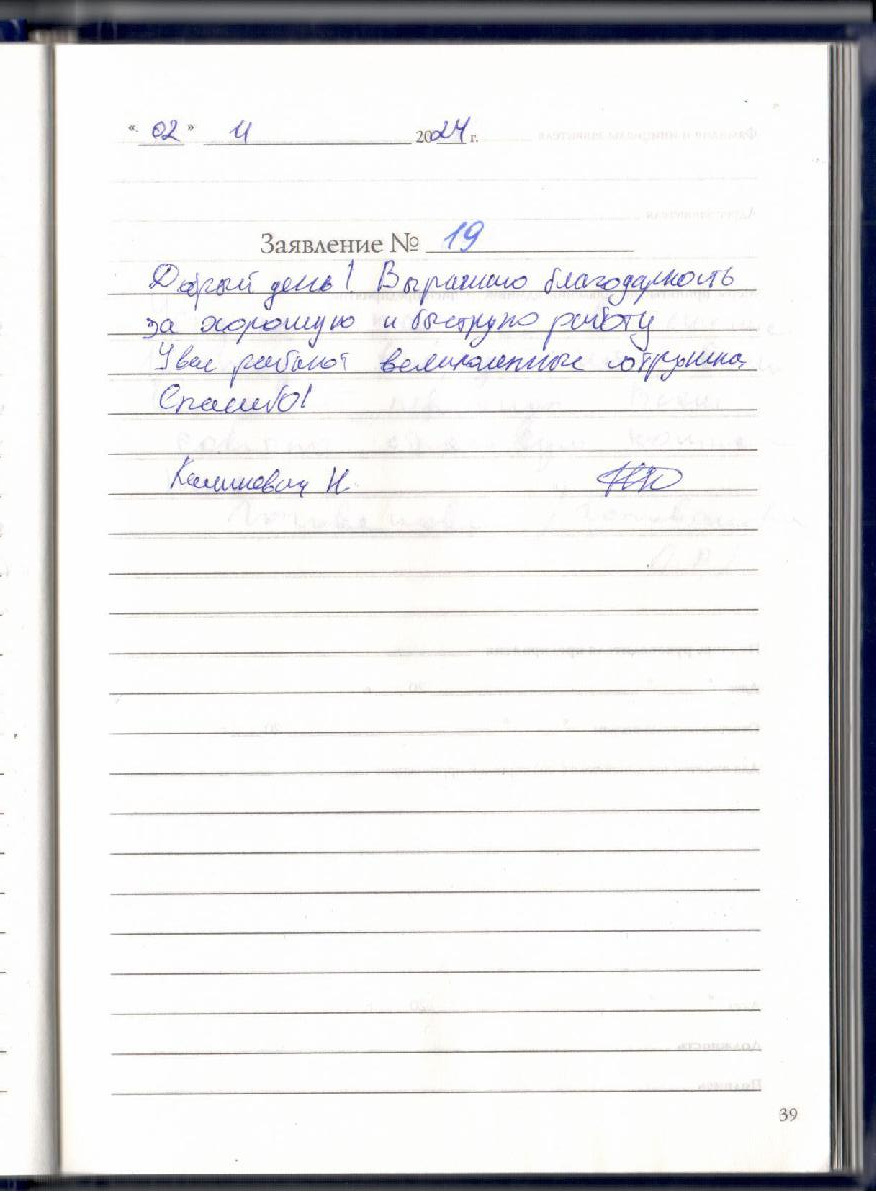 « 02 » 11 2024 г.
Заявление № 19
Добрый день! Выражаю благодарность
за хорошую и быструю работу
У вас работают великолепные сотрудники
Спасибо!
Калинкович Н.
39